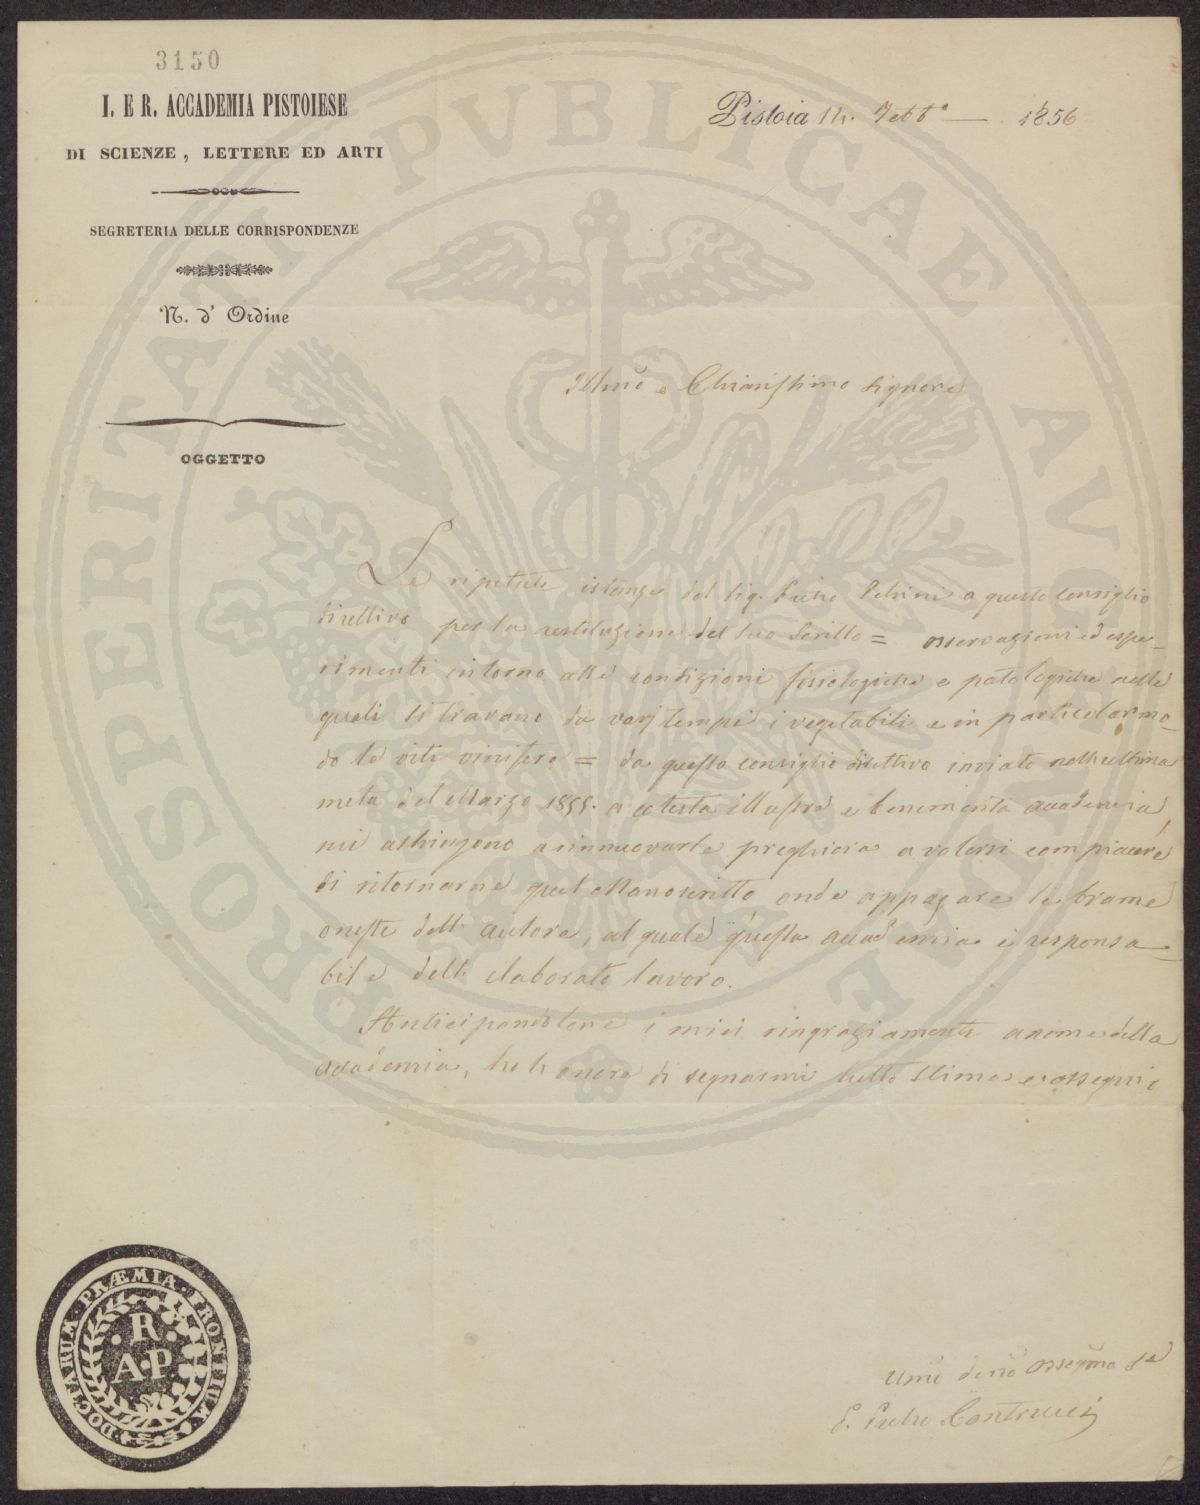 3150
I. E R. ACCADEMIA PISTOIESE
DI SCIENZE, LETTERE ED ARTI
SEGRETERIA DELLE CORRISPONDENZE
N. d' Ordine
OGGETTO
Pistoia 14. Febb° 1856
Illmo e Chiarissimo Signore
Le ripetute istanze del Sig. Pietro Petrini a questo consiglio
direttivo per la restituzione del suo Scritto = osservazioni ed espe-
rimenti intorno alle condizioni fisiologiche e patologiche nelle
quali si travano da varj tempi i vegetabili e in particolarmo-
do le viti vinifere = da questo consiglio direttivo inviato nell'ultima
metà del Marzo 1855. a cotesta illustre e benemerita accademia,
mi astringono a rinnuovarle preghiera a volersi compiacere
di ritornarne quel Manoscritto onde appagare le brame
oneste dell' autore, al quale questa accademia è responsa-
bile dell' elaborato lavoro.
Anticipandolene i miei ringraziamenti a nome della
accademia, ho l' onore di segnarmi tutto stima e ossequio
Umo devo ossequmo
P. Pietro Contrucci
DOCTARUM · PRÆMIA · FRONTIUM
· R ·
A · P
PROSPERITATI PUBLICAE AUGENDAE